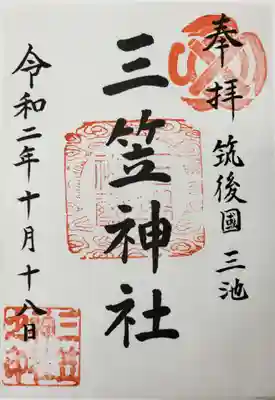 奉拝 筑後國 三池
三笠神社
令和二年十月十八日